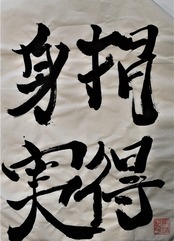 捐得
身実